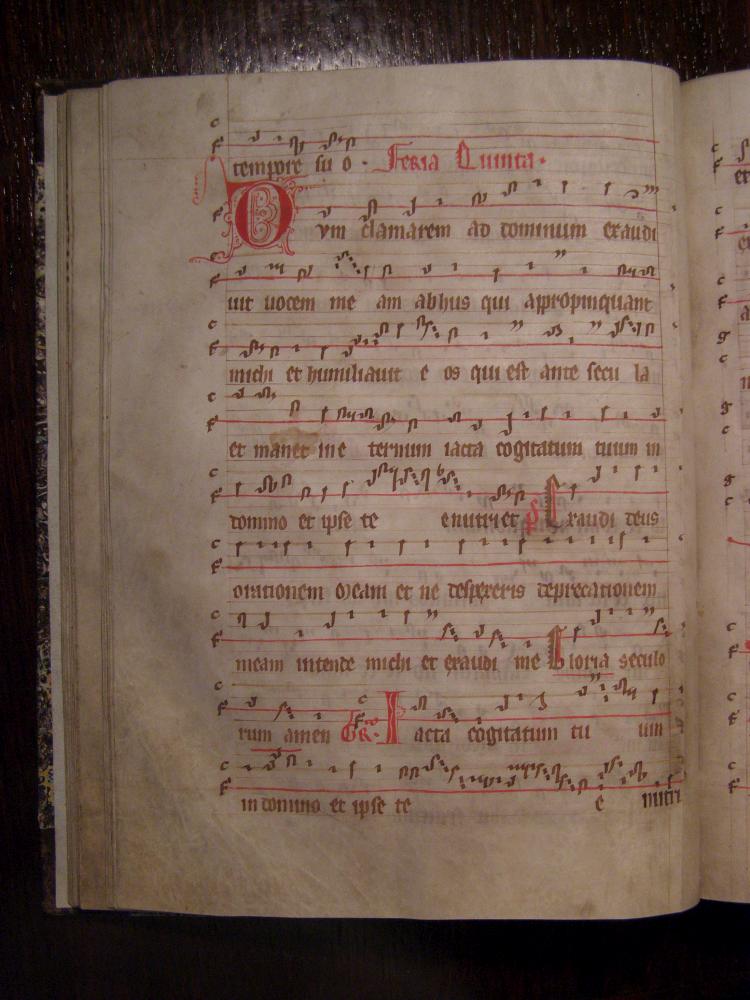 tempore su o · Feria Quinta ·
Dvm clamarem ad dominum exaudi
uit uocem me am ab hus qui appropinquant
michi et humiliauit e os qui est ante secu la
et manet in e ternum iacta cogitatum tuum in
domino et ipse te enutriet ps Exaudi deus
orationem meam et ne despexeris deprecationem
meam intende michi et exaudi me Gloria seculo
rum amen Gr. Iacta cogitatum tu um
in domino et ipse te e nutri